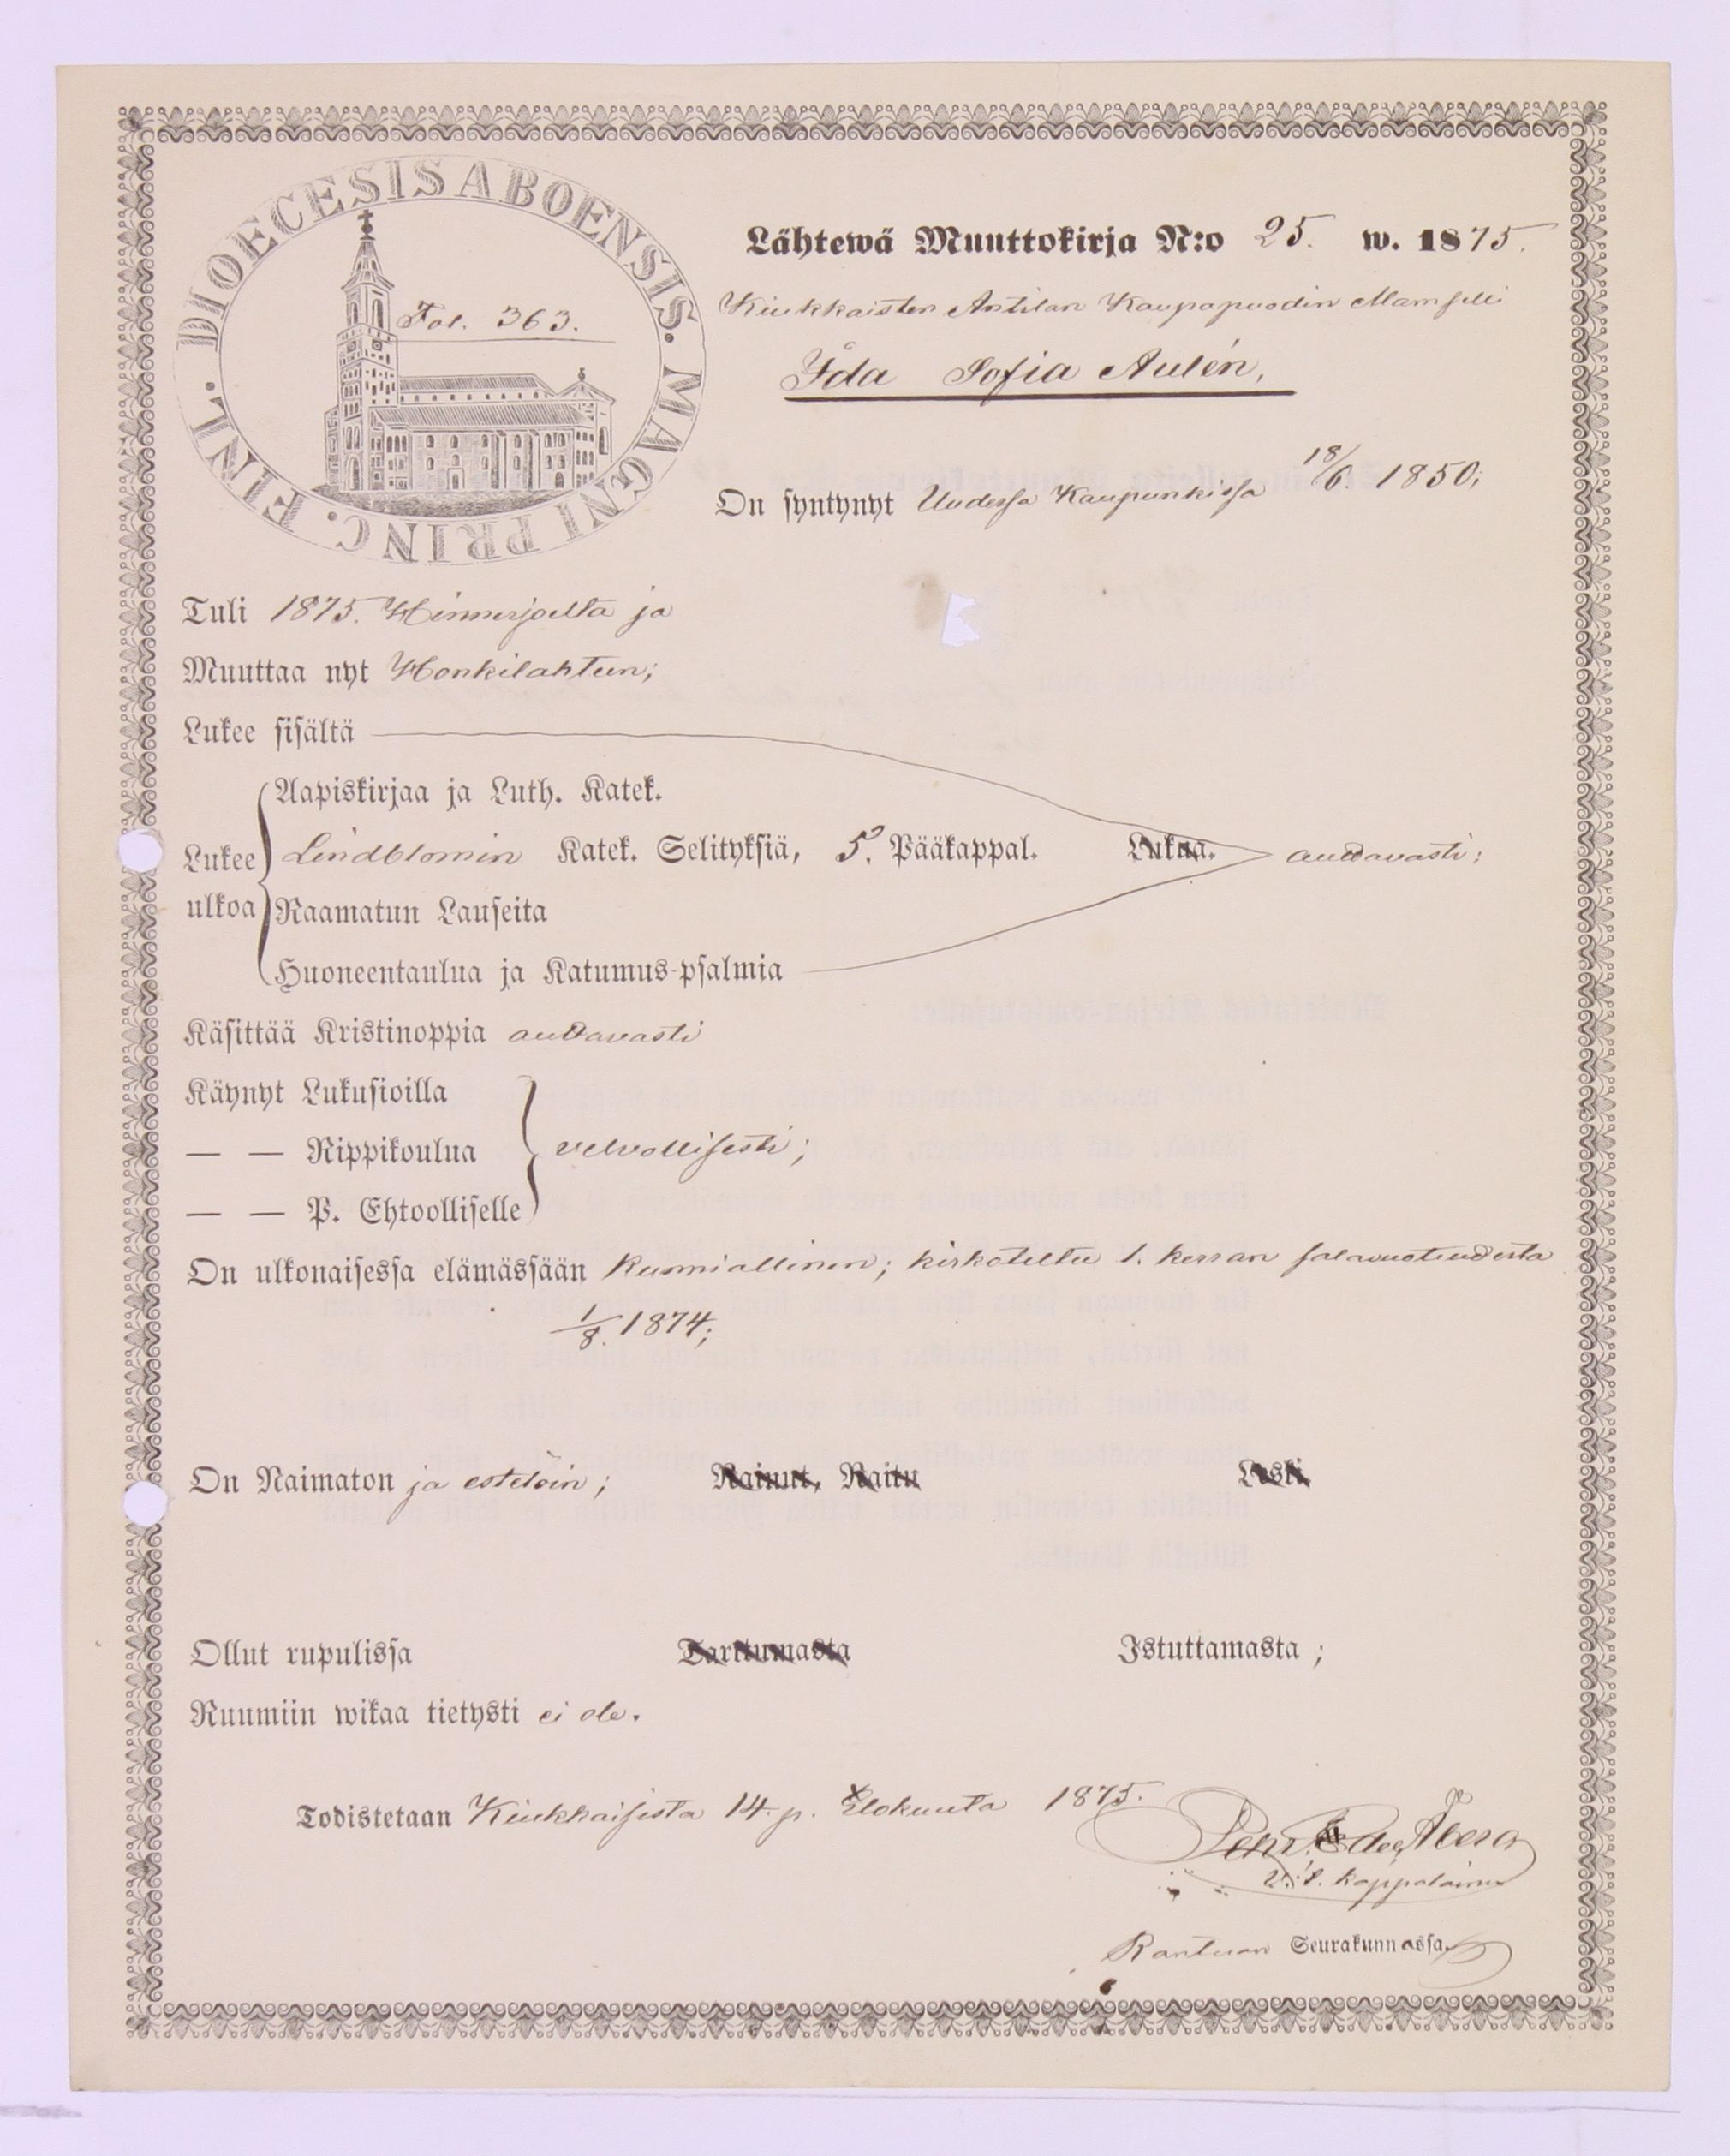 DIOECESIS ABOENSIS. MAGNI PRINC. FINL.
Fol. 363.
Lähtewä Muuttokirja N:o 25. w. 1875.
Kiukkaisten Anttilan Kauppapuodin Mamselli
Ida Sofia Aulén,
On syntynyt Uudessa Kaupunkissa 18/6. 1850;
Tuli 1875. Hinnerjoelta ja
Muuttaa nyt Honkilahteen;
Lukee sisältä
Aapiskirjaa ja Luth. Katek.
Lukee Lindblomin Katek. Selityksiä, 5. Pääkappal. Lukua. auttavasti;
ulkoa Raamatun Lauseita
Huoneentaulua ja Katumus-psalmia
Käsittää Kristinoppia auttavasti
Käynyt Lukusioilla
— — Rippikoulua velvollisesti;
— — P. Ehtoolliselle
On ulkonaisessa elämässään kunniallinen; kirkoteltu 1. kerran salavuoteudesta
1/8. 1874;
On Naimaton ja estetöin; Nainut, Naitu Leski
Ollut rupulissa Tarttumasta Istuttamasta ;
Ruumiin wikaa tietysti ei ole.
Todistetaan Kiukkaisista 14. p. Elokuuta 1875.
Åberg
V. t. kappalainen
Kantuan Seurakunnassa.